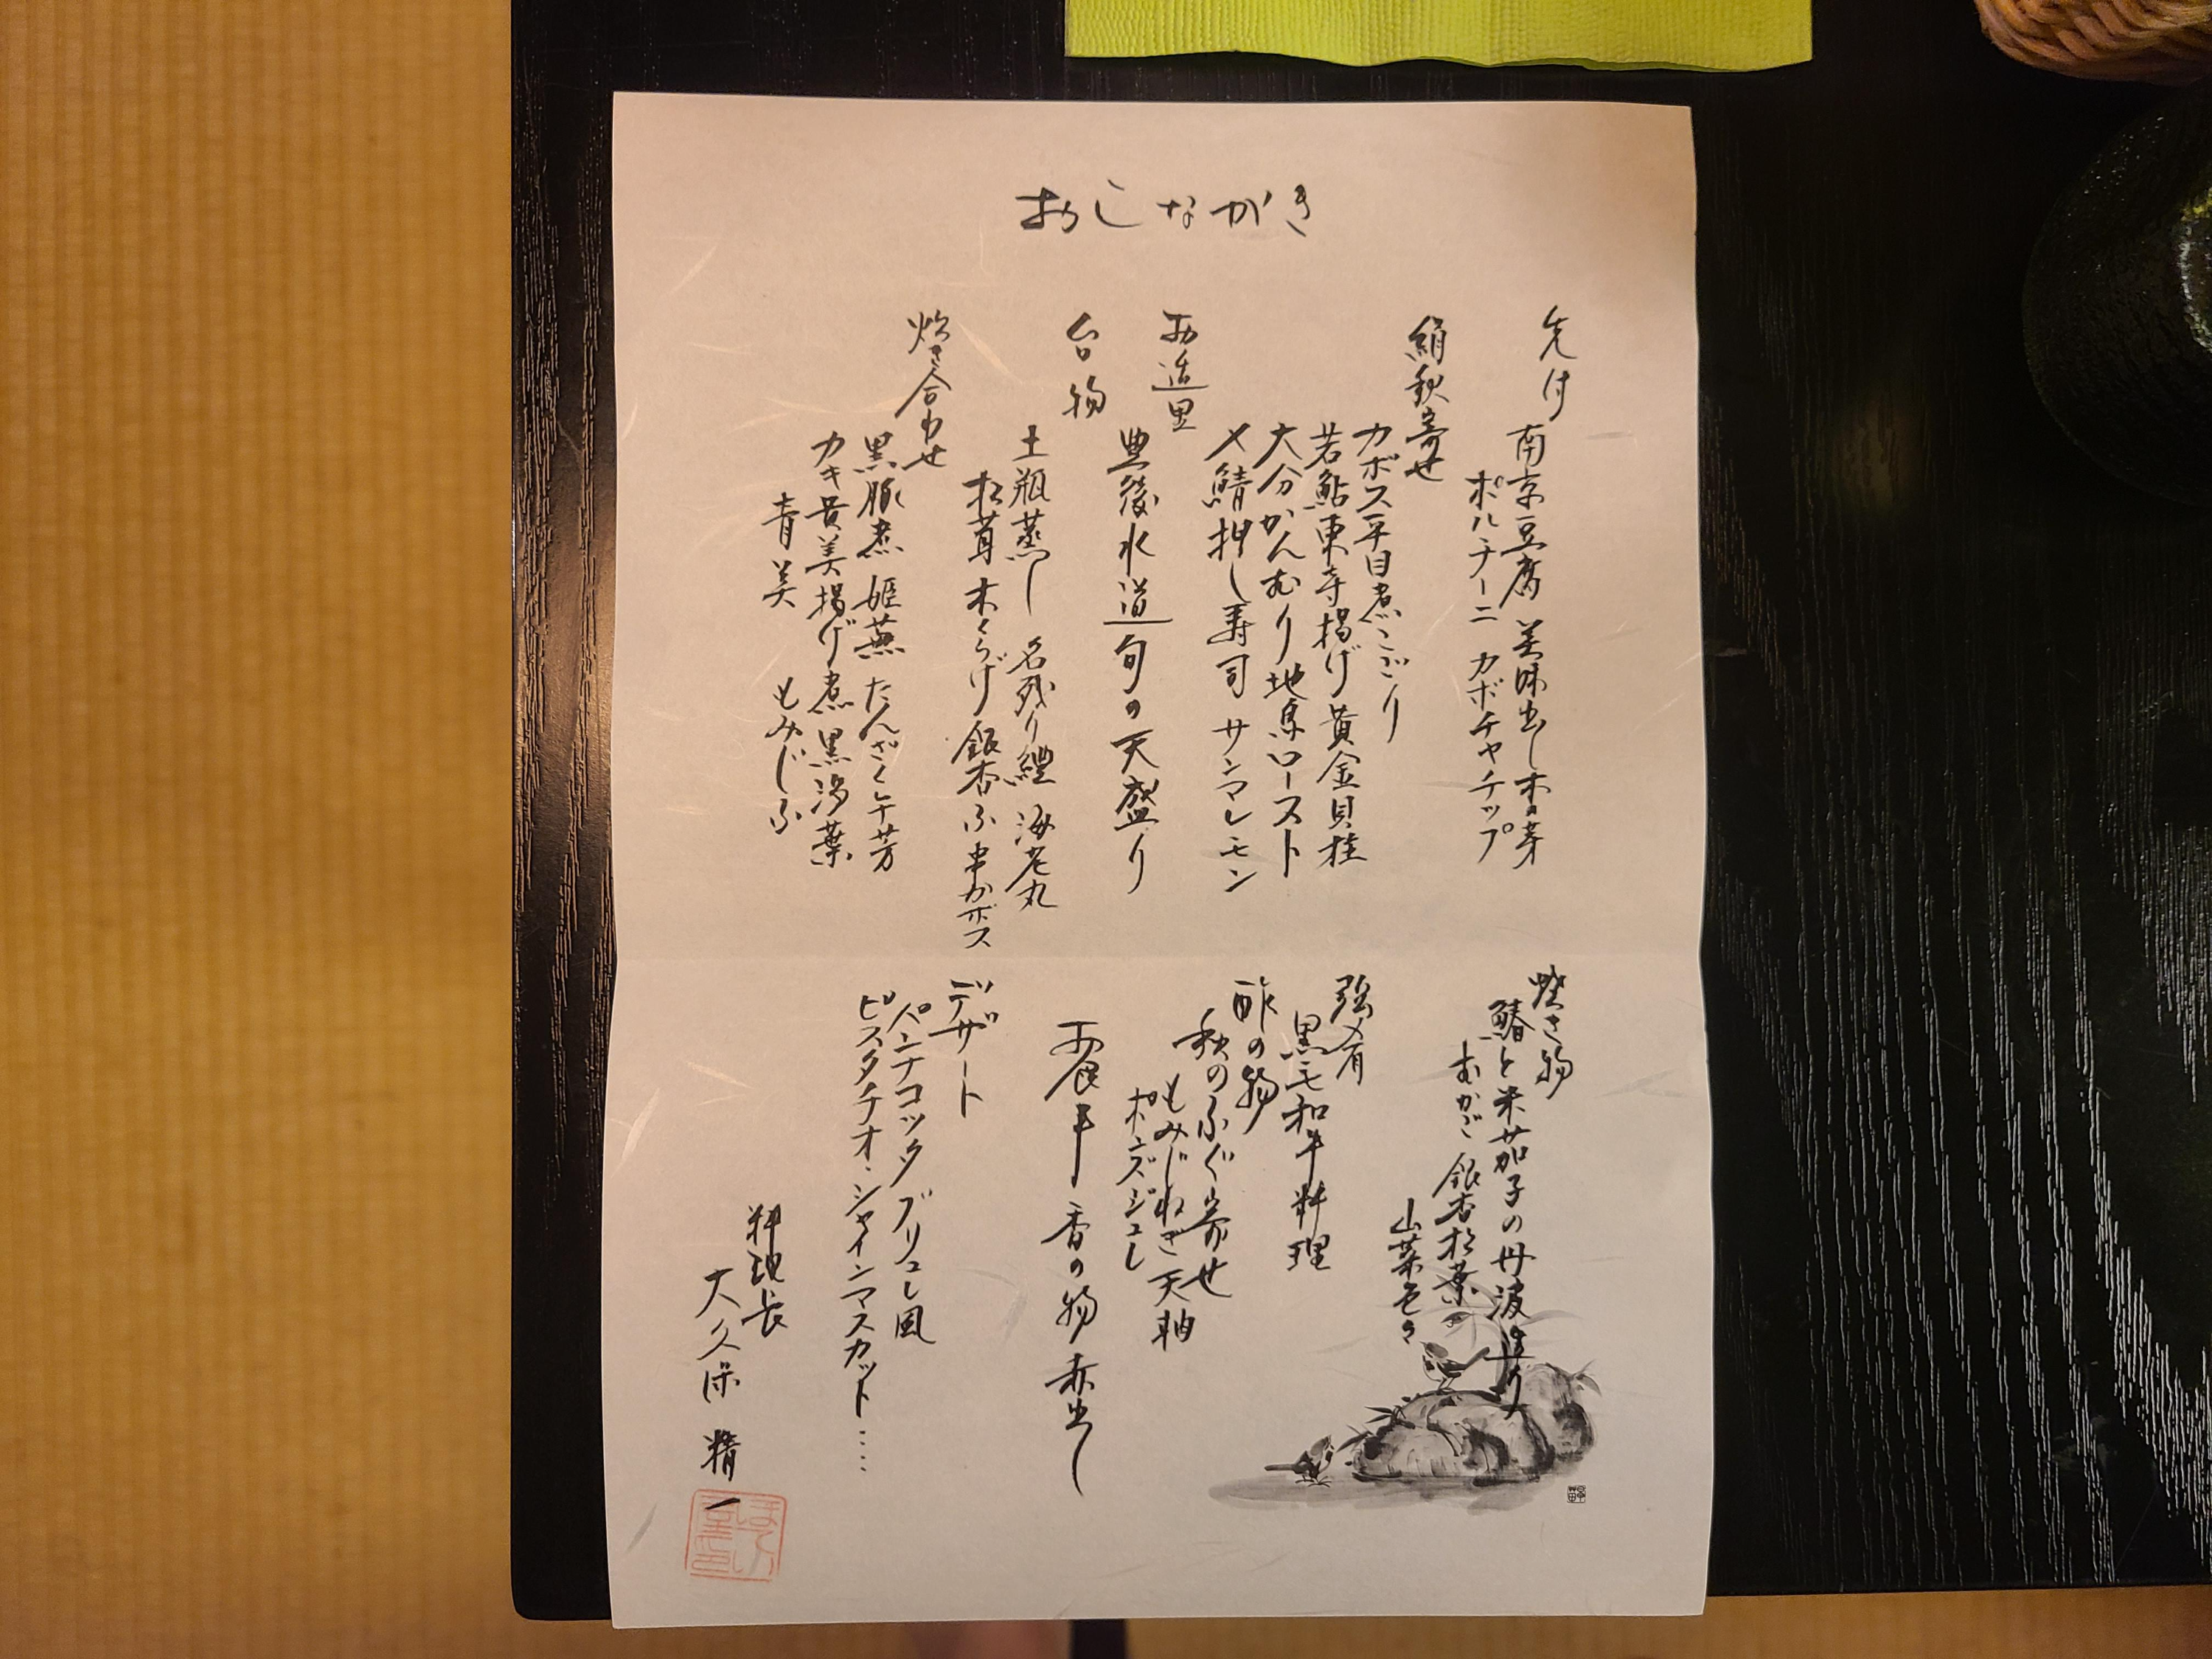 おしながき
先付
南京豆腐 美味出し 木の芽
ポルチーニ カボチャチップ
絹秋寄せ
カボス平目煮こごり
若鮎東寺揚げ 黄金貝桂
大分かんむり地鳥ロースト
〆鯖押し寿司 サンマレモン
お造里
豊後水道旬の天盛り
台物
土瓶蒸し 名残り鱧 海老丸
松茸 木くらげ 銀杏ふ 串カボス
炊き合わせ
黒豚煮 姫蕪 たんざく牛芳
カキ黄美揚げ煮 黒湯葉
青美 もみじふ
焼き物
鰆と米茄子の丹波造り
むかご 銀杏松葉
山菜色々
強肴
黒毛和牛料理
酢の物
秋のふぐ寄せ
もみじねぎ 天軸
ポンズジュレ
お食事 香の物 赤出し
デザート
パンナコッタブリュレ風
ピスタチオ・シャインマスカット……
料理長
大久保 精一